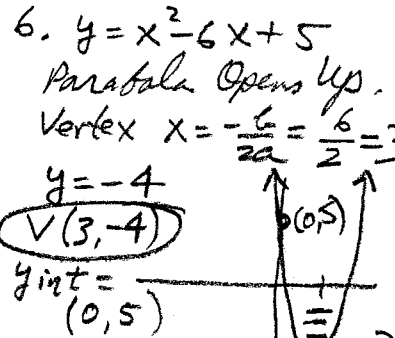 6. y = x² - 6x + 5
Parabola Opens Up.
Vertex x = -b/2a = 6/2 = 3
y = -4
V(3,-4)
(0,5)
y int =
(0,5)